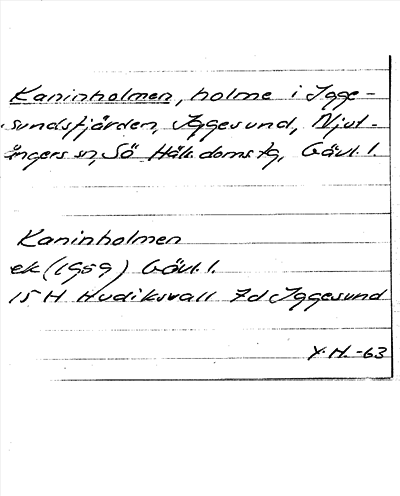 Kaninholmen, holme i Igge-
sundsfjärden, Iggesund, Njut-
ångers sn, Sö Häls. doms tg, Gävl. l.
Kaninholmen
ek (1959) Gävl. l.
15 H Hudiksvall 7d Iggesund
Y.H. -63